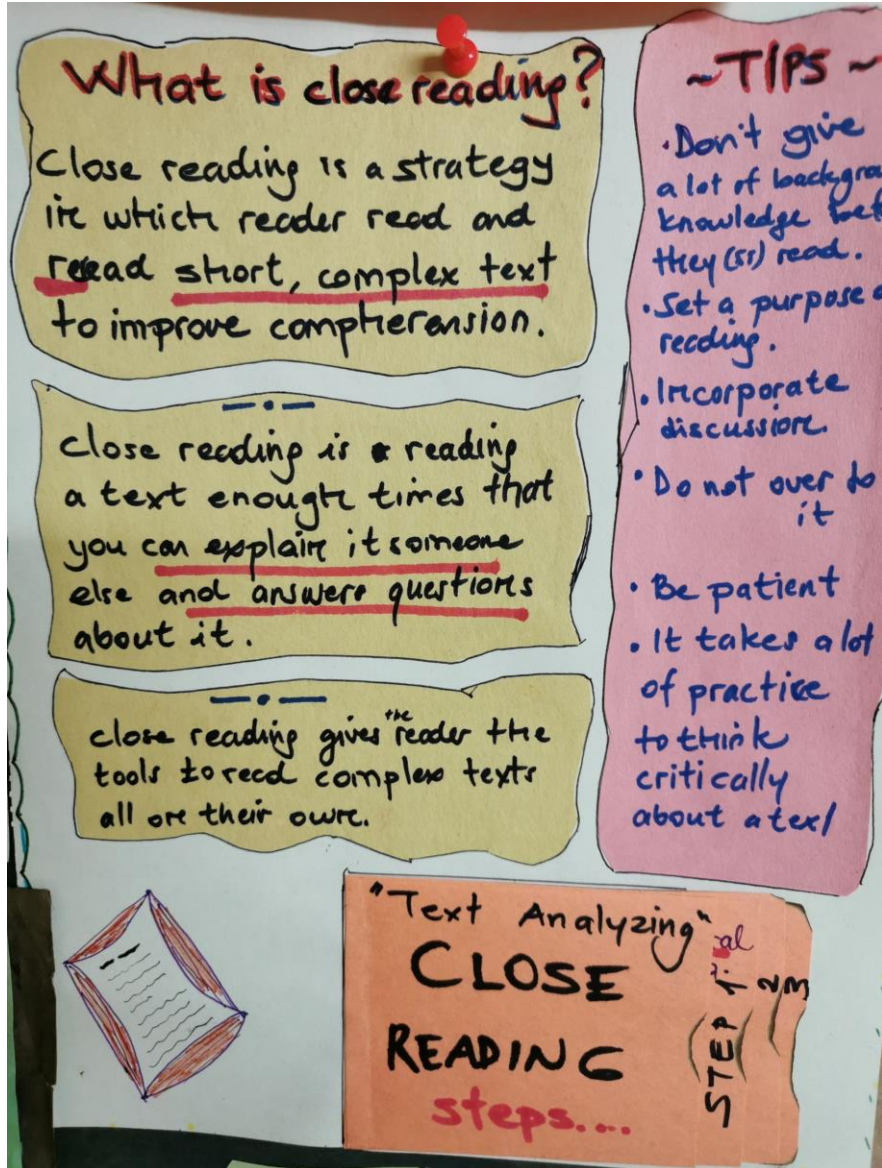 What is close reading?
Close reading is a strategy
in which reader read and
reread short, complex text
to improve compherension.
close reading is reading
a text enough times that
you can explain it someone
else and answers questions
about it.
close reading gives the reader the
tools to read complex texts
all on their own.
~ TIPS ~
• Don't give
a lot of backgrou
knowledge bef
they (ss) read.
• Set a purpose o
reading.
• Incorporate
discussion.
• Do not over do
it
• Be patient
• It takes a lot
of practice
to think
critically
about a text
"Text Analyzing"
CLOSE
READING
steps....
STEP 1
2
3